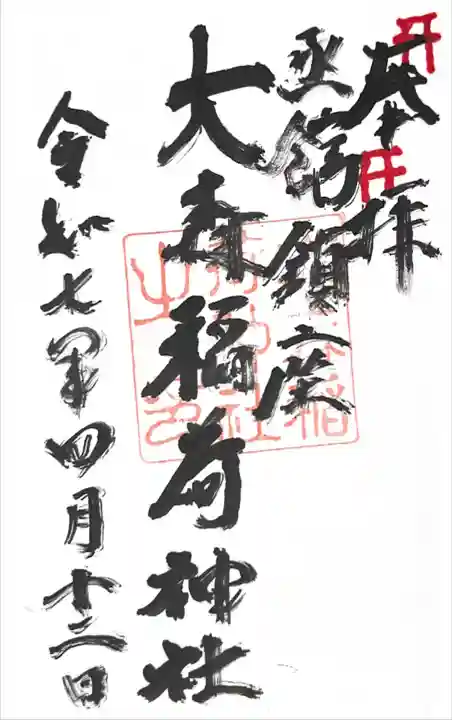 奉拝
函館鎮座
大森稲荷神社
令和七年四月十二日